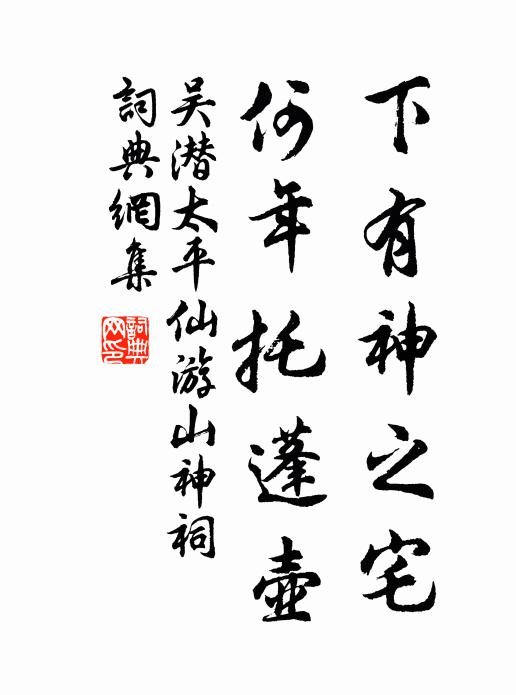 下有神之宅
何年托蓬壺
吴潜太平仙游山神祠
詞典網集
詞典网印